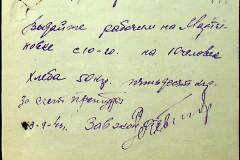 Выдайте рабочем на Марти-
новке с 10-го. на 10 человек
Хлеба 50 кг. пятьдесят кг.
за счет
Зав эк